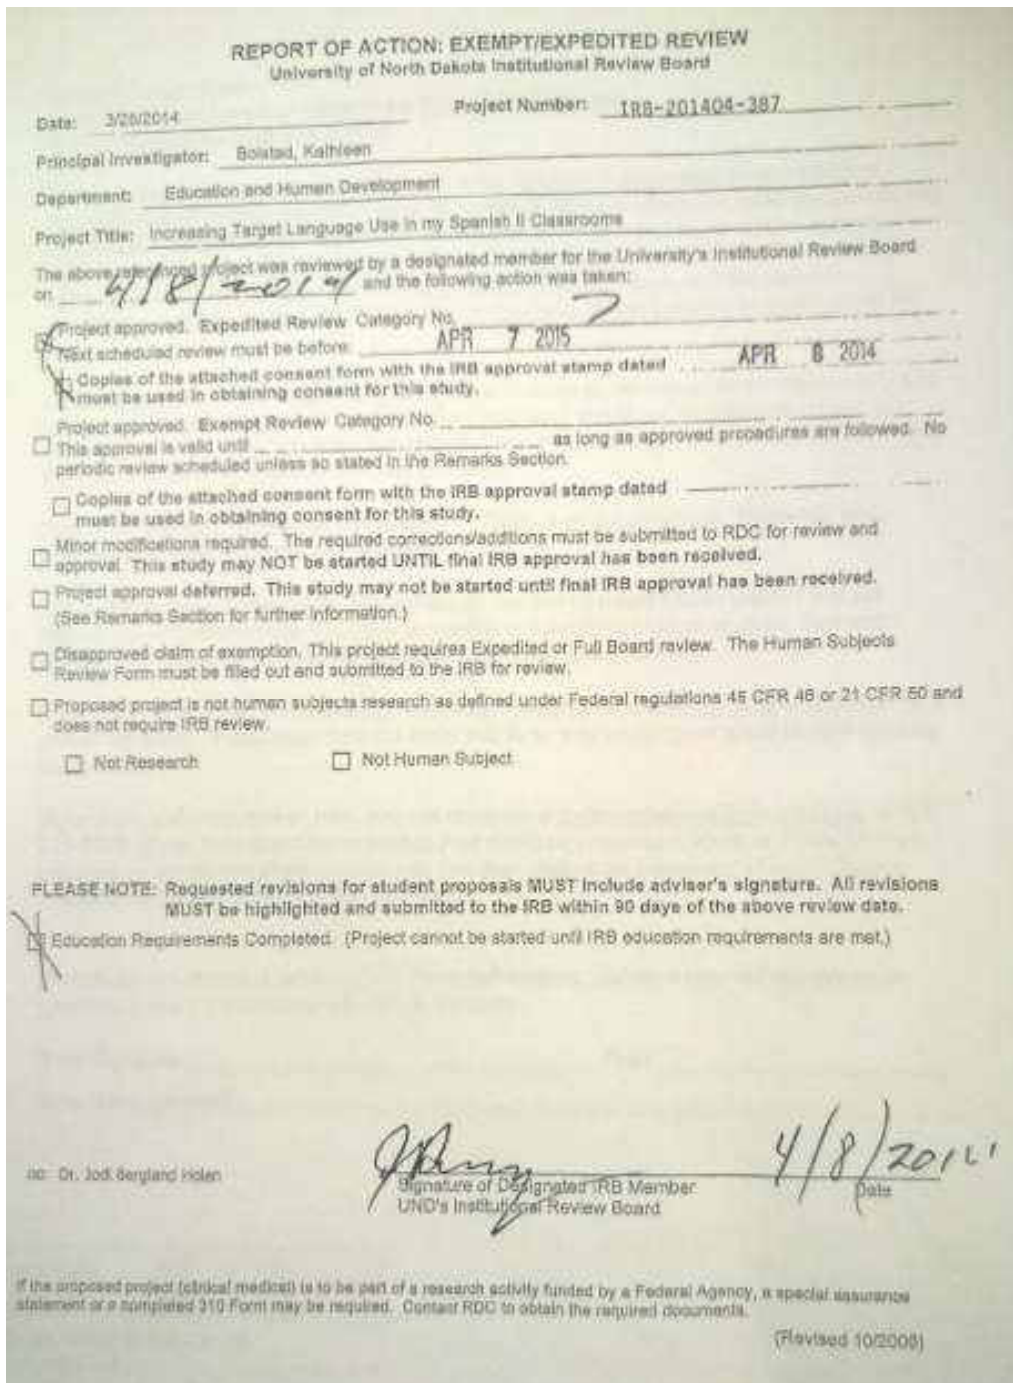 REPORT OF ACTION: EXEMPT/EXPEDITED REVIEW
University of North Dakota Institutional Review Board
Date: 3/26/2014 Project Number: IRB-201404-387
Principal Investigator: Bolstad, Kathleen
Department: Education and Human Development
Project Title: Increasing Target Language Use in my Spanish II Classrooms
The above referenced project was reviewed by a designated member for the University's Institutional Review Board
on 4/8/2014 and the following action was taken:
Project approved. Expedited Review Category No. 7
Next scheduled review must be before: APR 7 2015
Copies of the attached consent form with the IRB approval stamp dated APR 8 2014
must be used in obtaining consent for this study.
Project approved. Exempt Review Category No.
This approval is valid until as long as approved procedures are followed. No
periodic review scheduled unless so stated in the Remarks Section.
Copies of the attached consent form with the IRB approval stamp dated
must be used in obtaining consent for this study.
Minor modifications required. The required corrections/additions must be submitted to RDC for review and
approval. This study may NOT be started UNTIL final IRB approval has been received.
Project approval deferred. This study may not be started until final IRB approval has been received.
(See Remarks Section for further information.)
Disapproved claim of exemption. This project requires Expedited or Full Board review. The Human Subjects
Review Form must be filled out and submitted to the IRB for review.
Proposed project is not human subjects research as defined under Federal regulations 45 CFR 46 or 21 CFR 50 and
does not require IRB review.
Not Research Not Human Subject
PLEASE NOTE: Requested revisions for student proposals MUST include adviser's signature. All revisions
MUST be highlighted and submitted to the IRB within 90 days of the above review date.
Education Requirements Completed. (Project cannot be started until IRB education requirements are met.)
cc: Dr. Jodi Bergland Holen
4/8/2014
Signature of Designated IRB Member Date
UND's Institutional Review Board
If the proposed project (clinical medical) is to be part of a research activity funded by a Federal Agency, a special assurance
statement or a completed 310 Form may be required. Contact RDC to obtain the required documents.
(Revised 10/2006)